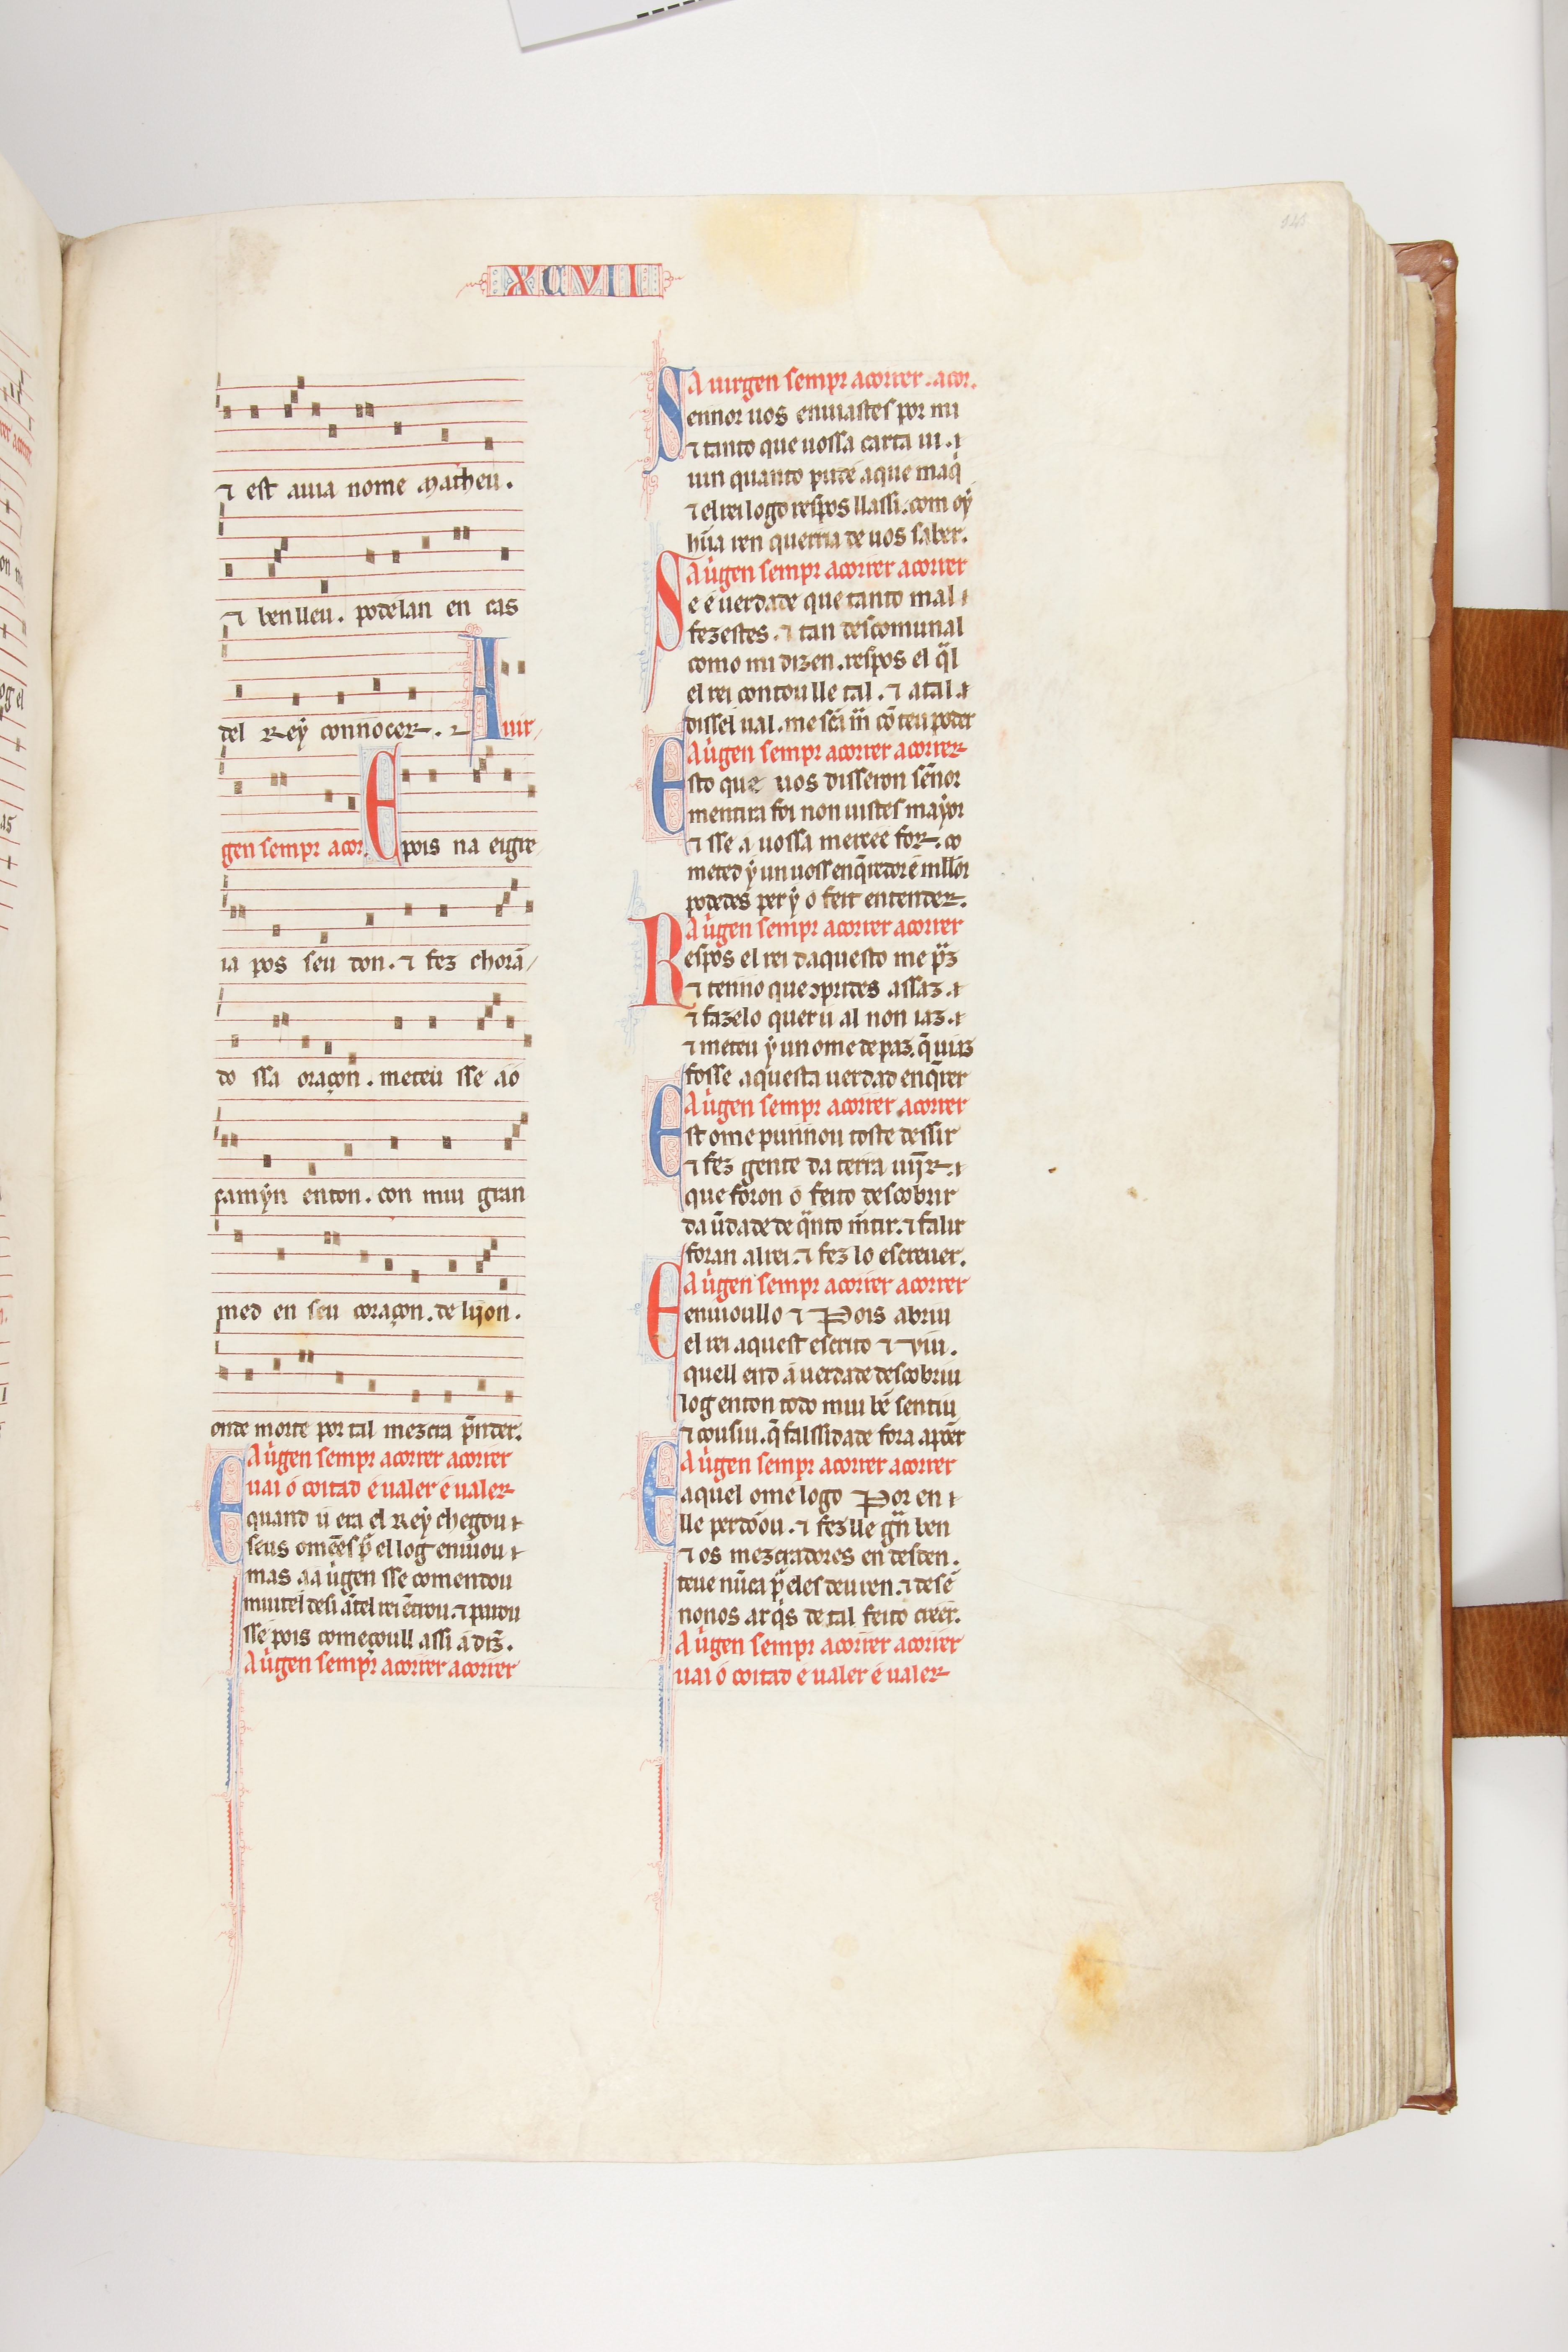 XCVII
⁊ est auia nome Matheu.
⁊ ben lleu. podelan en cas
del Rey connocer. A uir
gen sempr acor. E pois na eigre
ia pos seu don. ⁊ fez chorā
do ssa oraçon. meteu sse ao
camỹn enton. con mui gran
med en seu coraçon. de lijon.
onde morte por tal mezcra p̄nder.
A uirgen sempr acorrer acorrer
uai o coitad e ualer e ualer
E quand u era el Rey chegou
seus omēes p̄ el log enuiou
mas aa uirgen sse comendou
muit el desi ātel rei ētrou. ⁊ parou
sse pois começoull assi a diz̄.
A uirgen sempr acorrer acorrer
A uirgen sempr acorrer. acor.
Sennor uos enuiastes por mi
⁊ tanto que uossa carta ui.
uin quanto pude aque maq̄
⁊ el rei logo respos llassi. com oẏ
hūa ren querria de uos saber.
A uirgen sempr acorrer acorrer
Se e uerdade que tanto mal
fezestes. ⁊ tan descomunal
como mi dizen. respos el q̄l
el rei contoulle tal. ⁊ atal.
dissel ual. me sc̄a m̄ cō teu poder
A uirgen sempr acorrer acorrer
Esto que uos disseron sēnor
mentira foi non uistes mayor
⁊ sse a uossa mercee for. co
meted ẏ un uoss enq̄redor e mllor
podedes per ẏ o feit entender.
A uirgen sempr acorrer acorrer
Respos el rei daquesto me p̄z
⁊ tenno que ɔprides assaz.
⁊ fazelo quer u al non iaz.
⁊ meteu ẏ un ome de paz. q̄ uiaz
fosse aquesta uerdad enq̄rer
A uirgen sempr acorrer acorrer
Est ome punnou toste dessir
⁊ fez gente da terra uīj̄r.
que foron o feito descobrir
da ūdade de q̄nto m̄tir. ⁊ falir
foran al rei. ⁊ fez lo escreuer.
A uirgen sempr acorrer acorrer
E enuioullo ⁊ Pois abriu
el rei aquest escrito ⁊ viu.
quell end a uerdade descobriu
log enton todo mui bē sentiu
⁊ cousiu. q̄ falssidade fora apōer
A uirgen sempr acorrer acorrer
E aquel ome logo Por en
lle perdōou. ⁊ fezlle gn̄ ben
⁊ os mezcradores en desden.
teue nūca p̄ eles deu ren. ⁊ desē
nonos ar q̄s de tal feito creer.
A uirgen sempr acorrer acorrer
uai o coitad e ualer e ualer